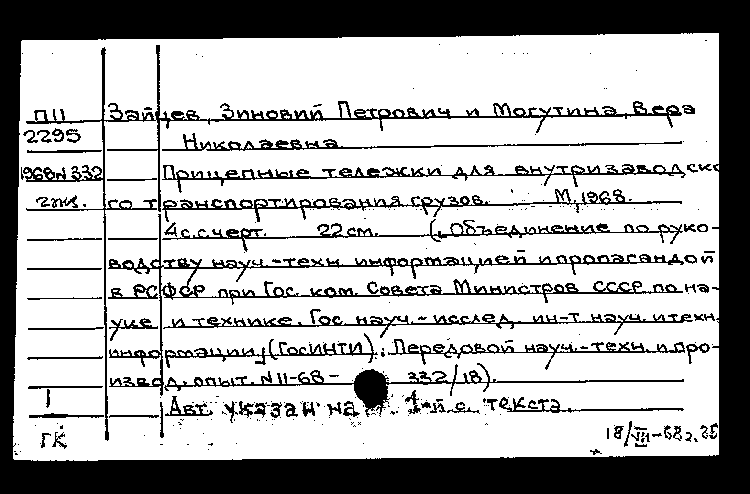 П11 Зайцев, Зиновий Петрович и Могутина, Вера
2295 Николаевна.
1968 N 332 Прицепные тележки для внутризаводско
гпк. го транспортирования грузов. М, 1968.
4с. с черт. 22 см. („Объединение по руко-
водству науч.-техн. информацией и пропагандой
в РСФСР при Гос. ком. Совета Министров СССР по на-
уке и технике. Гос. науч.-исслед. ин-т науч. и техн.
информации„(ГосИНТИ). Передовой науч.-техн. и про-
извод. опыт. N 11-68- 332/18).
1 Авт. указан на 1-й с. текста.
ГК 18/VII-68г.